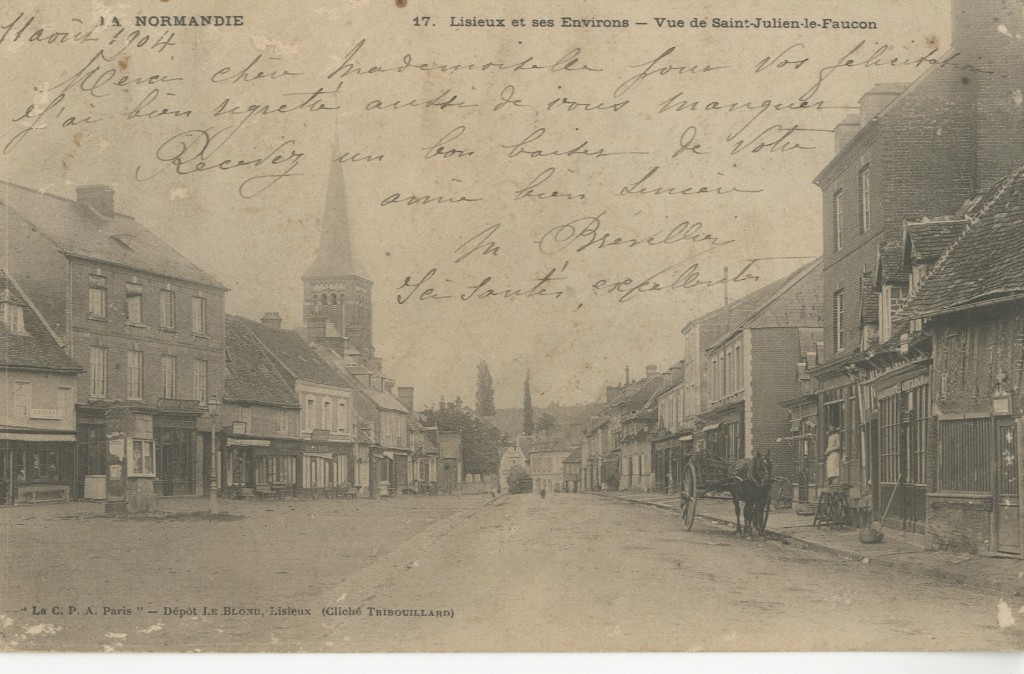 LA NORMANDIE
17. Lisieux et ses Environs — Vue de Saint-Julien-le-Faucon
11 août 1904
Merci chère Mademoiselle pour vos félicitations
J'ai bien regretté aussi de vous manquer
Recevez un bon baiser de votre
amie bien sincère
M
Ici santés excellentes
" La C. P. A. Paris " — Dépôt LE BLOND, Lisieux (Cliché TRIBOUILLARD)